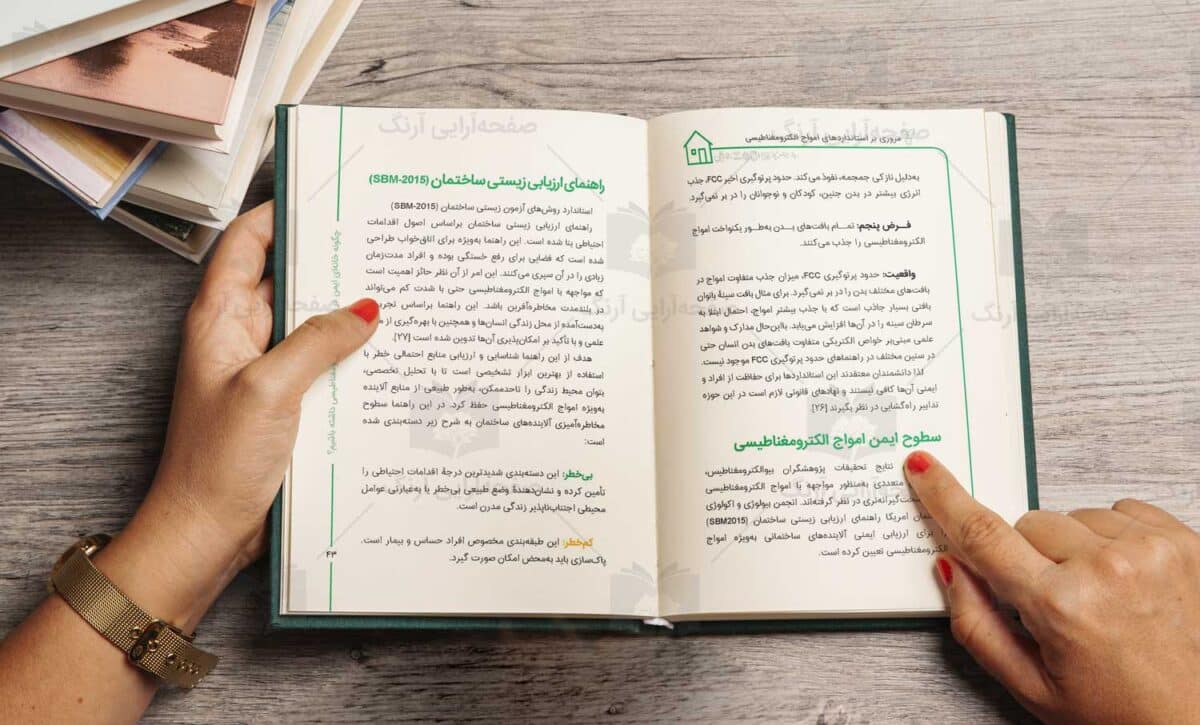 مروری بر استانداردهای امواج الکترومغناطیسی
به‌دلیل نازکی جمجمه، نفوذ می‌کند. حدود پرتوگیری اخیر FCC، جذب
انرژی بیشتر در بدن جنین، کودکان و نوجوانان را در بر نمی‌گیرد.
فـرض پنجم: تمـام بافت‌های بـدن به‌طـور یکنواخت امواج
الکترومغناطیسی را جذب می‌کنند.
واقعیت: حدود پرتوگیری FCC، میزان جذب متفاوت امواج در
بافت‌های مختلف بدن را در بر نمی‌گیرد. برای مثال بافت سینهٔ بانوان
بافتی بسیار جاذب است که با جذب بیشتر امواج، احتمال ابتلا به
سرطان سینه را در آن‌ها افزایش می‌یابد. بااین‌حال مدارک و شواهد
علمی مبنی‌بر خواص الکتریکی متفاوت بافت‌های بدن انسان حتی
در سنین مختلف در راهنماهای حدود پرتوگیری FCC موجود نیست.
لذا دانشمندان معتقدند این استانداردها برای حفاظت از افراد و
ایمنی آن‌ها کافی نیستند و نهادهای قانونی لازم است در این حوزه
تدابیر راه‌گشایی در نظر بگیرند [۲۶].
سطوح ایمن امواج الکترومغناطیسی
نتایج تحقیقات پژوهشگران بیوالکترومغناطیس،
متعددی به‌منظور مواجهه با امواج الکترومغناطیسی
سخت‌گیرانه‌تری در نظر گرفته‌اند. انجمن بیولوژی و اکولوژی
امریکا راهنمای ارزیابی زیستی ساختمان (SBM2015)
برای ارزیابی ایمنی آلاینده‌های ساختمانی به‌ویژه امواج
الکترومغناطیسی تعیین کرده است.
راهنمای ارزیابی زیستی ساختمان (SBM-2015)
استاندارد روش‌های آزمون زیستی ساختمان (SBM-2015)
راهنمای ارزیابی زیستی ساختمان براساس اصول اقدامات
احتیاطی بنا شده است. این راهنما به‌ویژه برای اتاق‌خواب طراحی
شده است که فضایی برای رفع خستگی بوده و افراد مدت‌زمان
زیادی را در آن سپری می‌کنند. این امر از آن نظر حائز اهمیت است
که مواجهه با امواج الکترومغناطیسی حتی با شدت کم می‌تواند
در بلندمدت مخاطره‌آفرین باشد. این راهنما براساس
به‌دست‌آمده از محل زندگی انسان‌ها و همچنین با بهره‌گیری از
علمی و با تأکید بر امکان‌پذیری آن‌ها تدوین شده است [۲۷].
هدف از این راهنما شناسایی و ارزیابی منابع احتمالی خطر با
استفاده از بهترین ابزار تشخیصی است تا با تحلیل تخصصی،
بتوان محیط زندگی را تاحدممکن، به‌طور طبیعی از منابع آلاینده
به‌ویژه امواج الکترومغناطیسی حفظ کرد. در این راهنما سطوح
مخاطره‌آمیزی آلاینده‌های ساختمان به شرح زیر دسته‌بندی شده
است:
بی‌خطر: این دسته‌بندی شدیدترین درجهٔ اقدامات احتیاطی را
تأمین کرده و نشان‌دهندهٔ وضع طبیعی بی‌خطر یا به‌عبارتی عوامل
محیطی اجتناب‌ناپذیر زندگی مدرن است.
کم‌خطر: این طبقه‌بندی مخصوص افراد حساس و بیمار است.
پاک‌سازی باید به‌محض امکان صورت گیرد.
چگونه خانه‌ای ایمن
داشته باشیم؟
۴۳
صفحه‌آرایی آرنگ
صفحه‌آرایی آرنگ
صفحه‌آرایی آرنگ
صفحه‌آرایی آرنگ